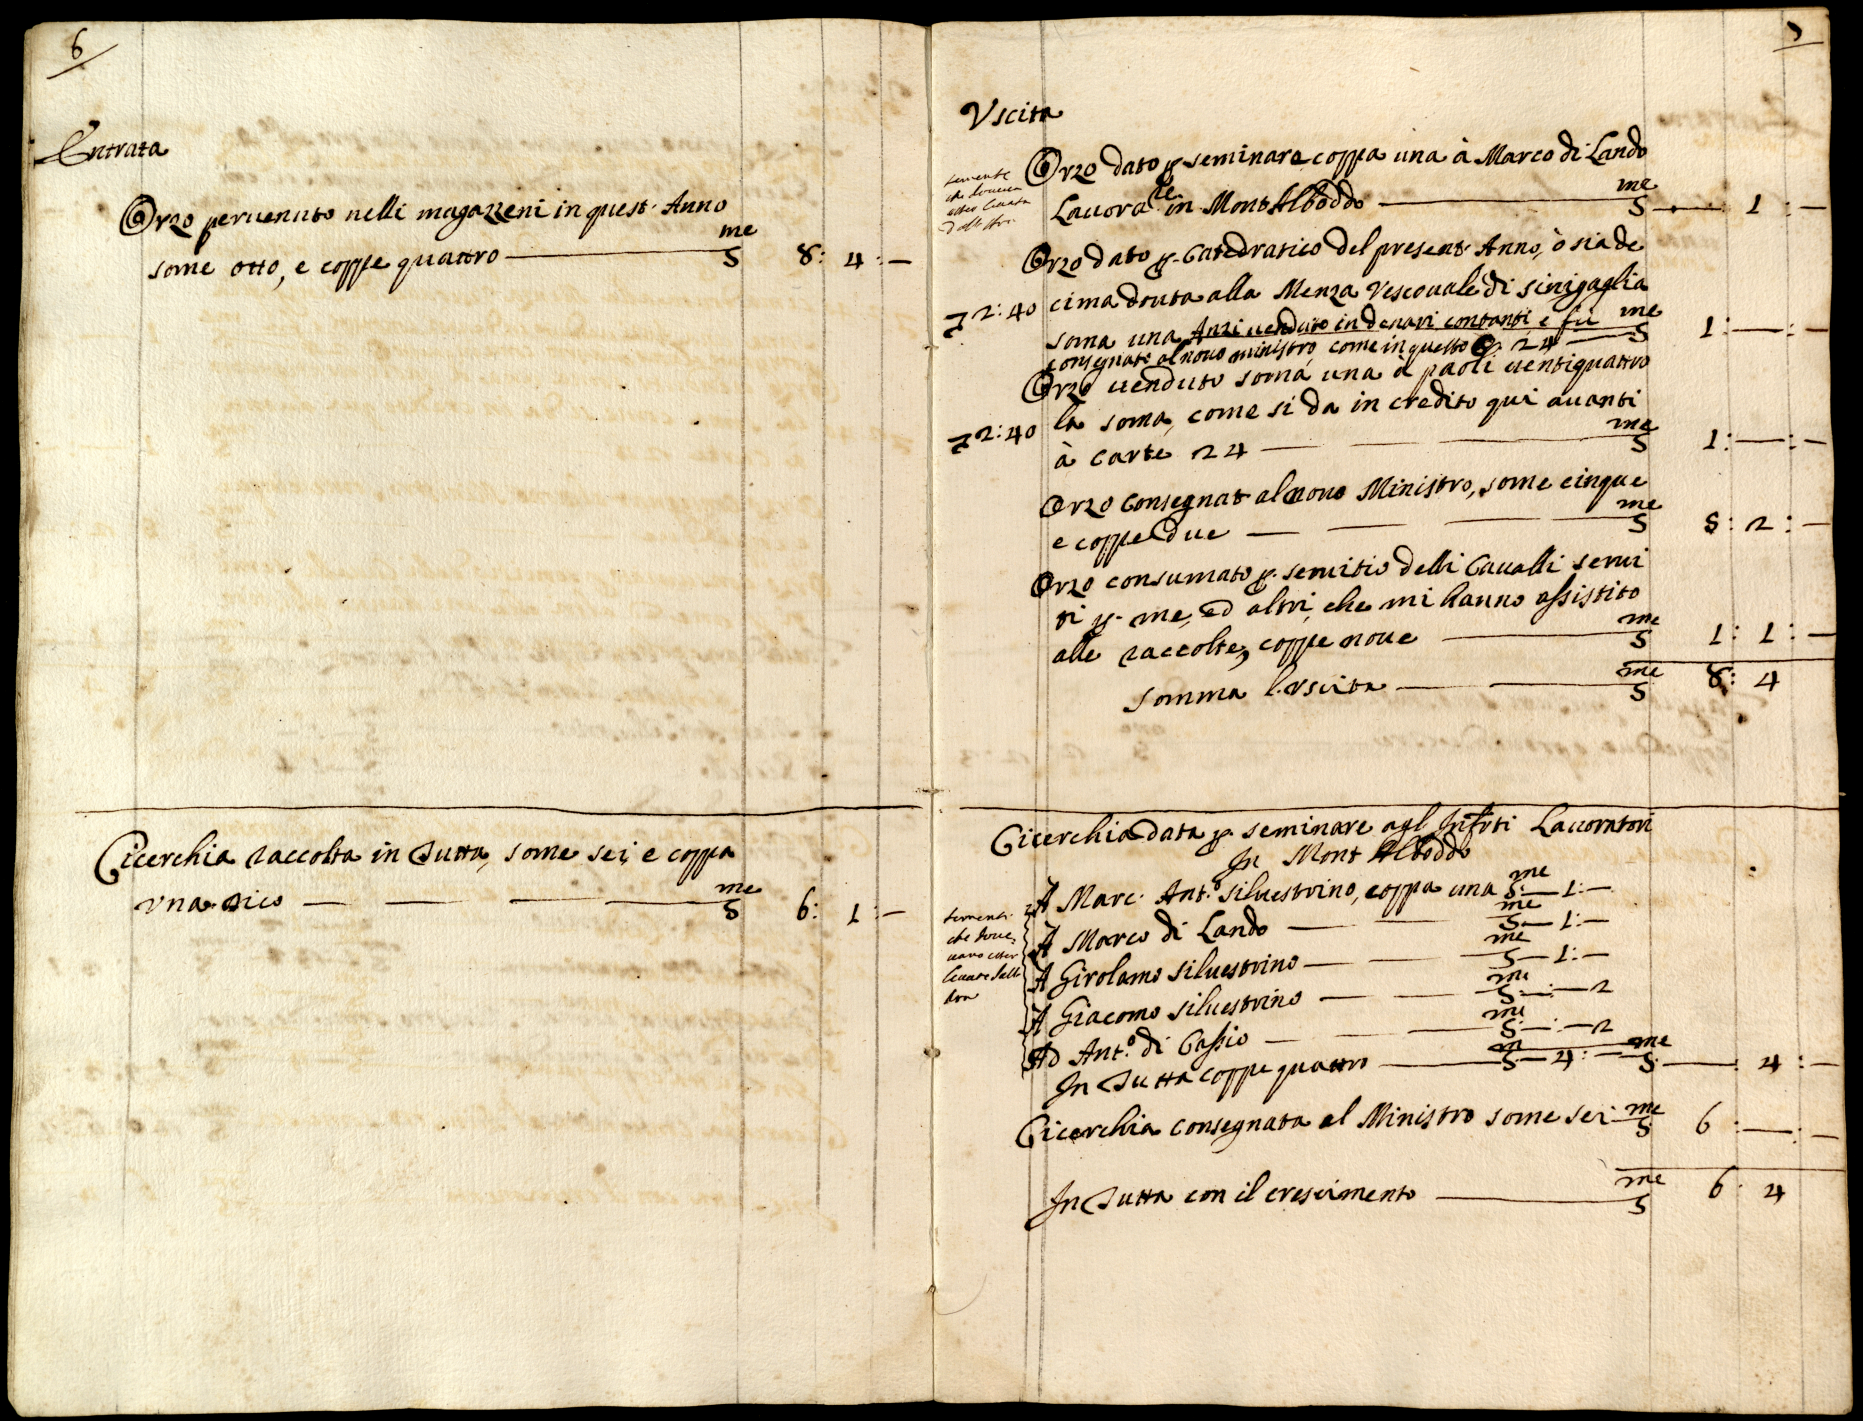 6
Entrata
Orzo peruenuto nelli magazzeni in quest. Anno
some otto, e coppe quattro — S.me 8: 4: —
Cicerchia raccolta in Tutta, some sei, e coppa
vna dico — S.me 6: 1: —
7
Vscita
Orzo dato p. seminare coppa una à Marco di Lando
Lauora.re in Mont Alboddo — S.me — 1: —
semente
che doueua
esser leuata
Orzo dato p. Catedratico del present. Anno, ò sia de
72:40 cima douta alla Menza Vescouale di Sinigaglia
soma una Anzi uenduto in denari contanti e fu S.me 1: — : —
consegnato al nouo ministro, come in questo 24
Orzo uenduto soma una à paoli uentiquattro
la soma, come si da in credito qui auanti
72:40 à Carte 24 — S.me 1: — : —
Orzo Consegnat. al nouo Ministro, some cinque
e coppe due — S.me 5: 2: —
Orzo consumato p. seruitio delli Caualli serui
ti p. me, ed altri, che mi hanno assistito
alle raccolte, coppe noue — S.me 1: 1: —
Somma l'vscita — S.me 8: 4
Cicerchia data p. seminare agl' Infr.ti Lauoratori
In Mont Alboddo
A Marc. Ant.o Siluestrino, coppa una S.me — 1: —
A Marco di Lando — S.me — 1: —
A Girolamo Siluestrino — S.me — 1: —
A Giacomo Siluestrino — S.me — : — 2
Ad Ant.o di Cassio — S.me — : — 2
sementi
che doue,
uano esser
leuate dall
In Tutta coppe quattro — S.m — 4: — S.me — : 4: —
Cicerchia consegnata al Ministro some sei S.me 6: — : —
In Tutta con il crescimento — S.me 6: 4